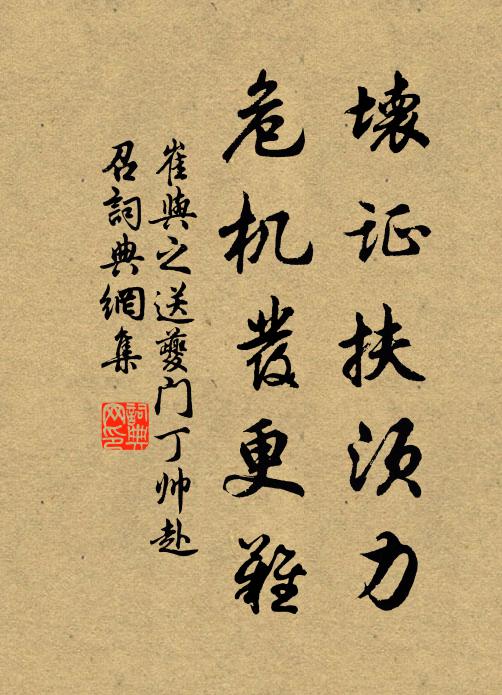 壊证扶须力
危机發更難
崔與之送夔门丁帅赴
召詞典網集
詞典网印